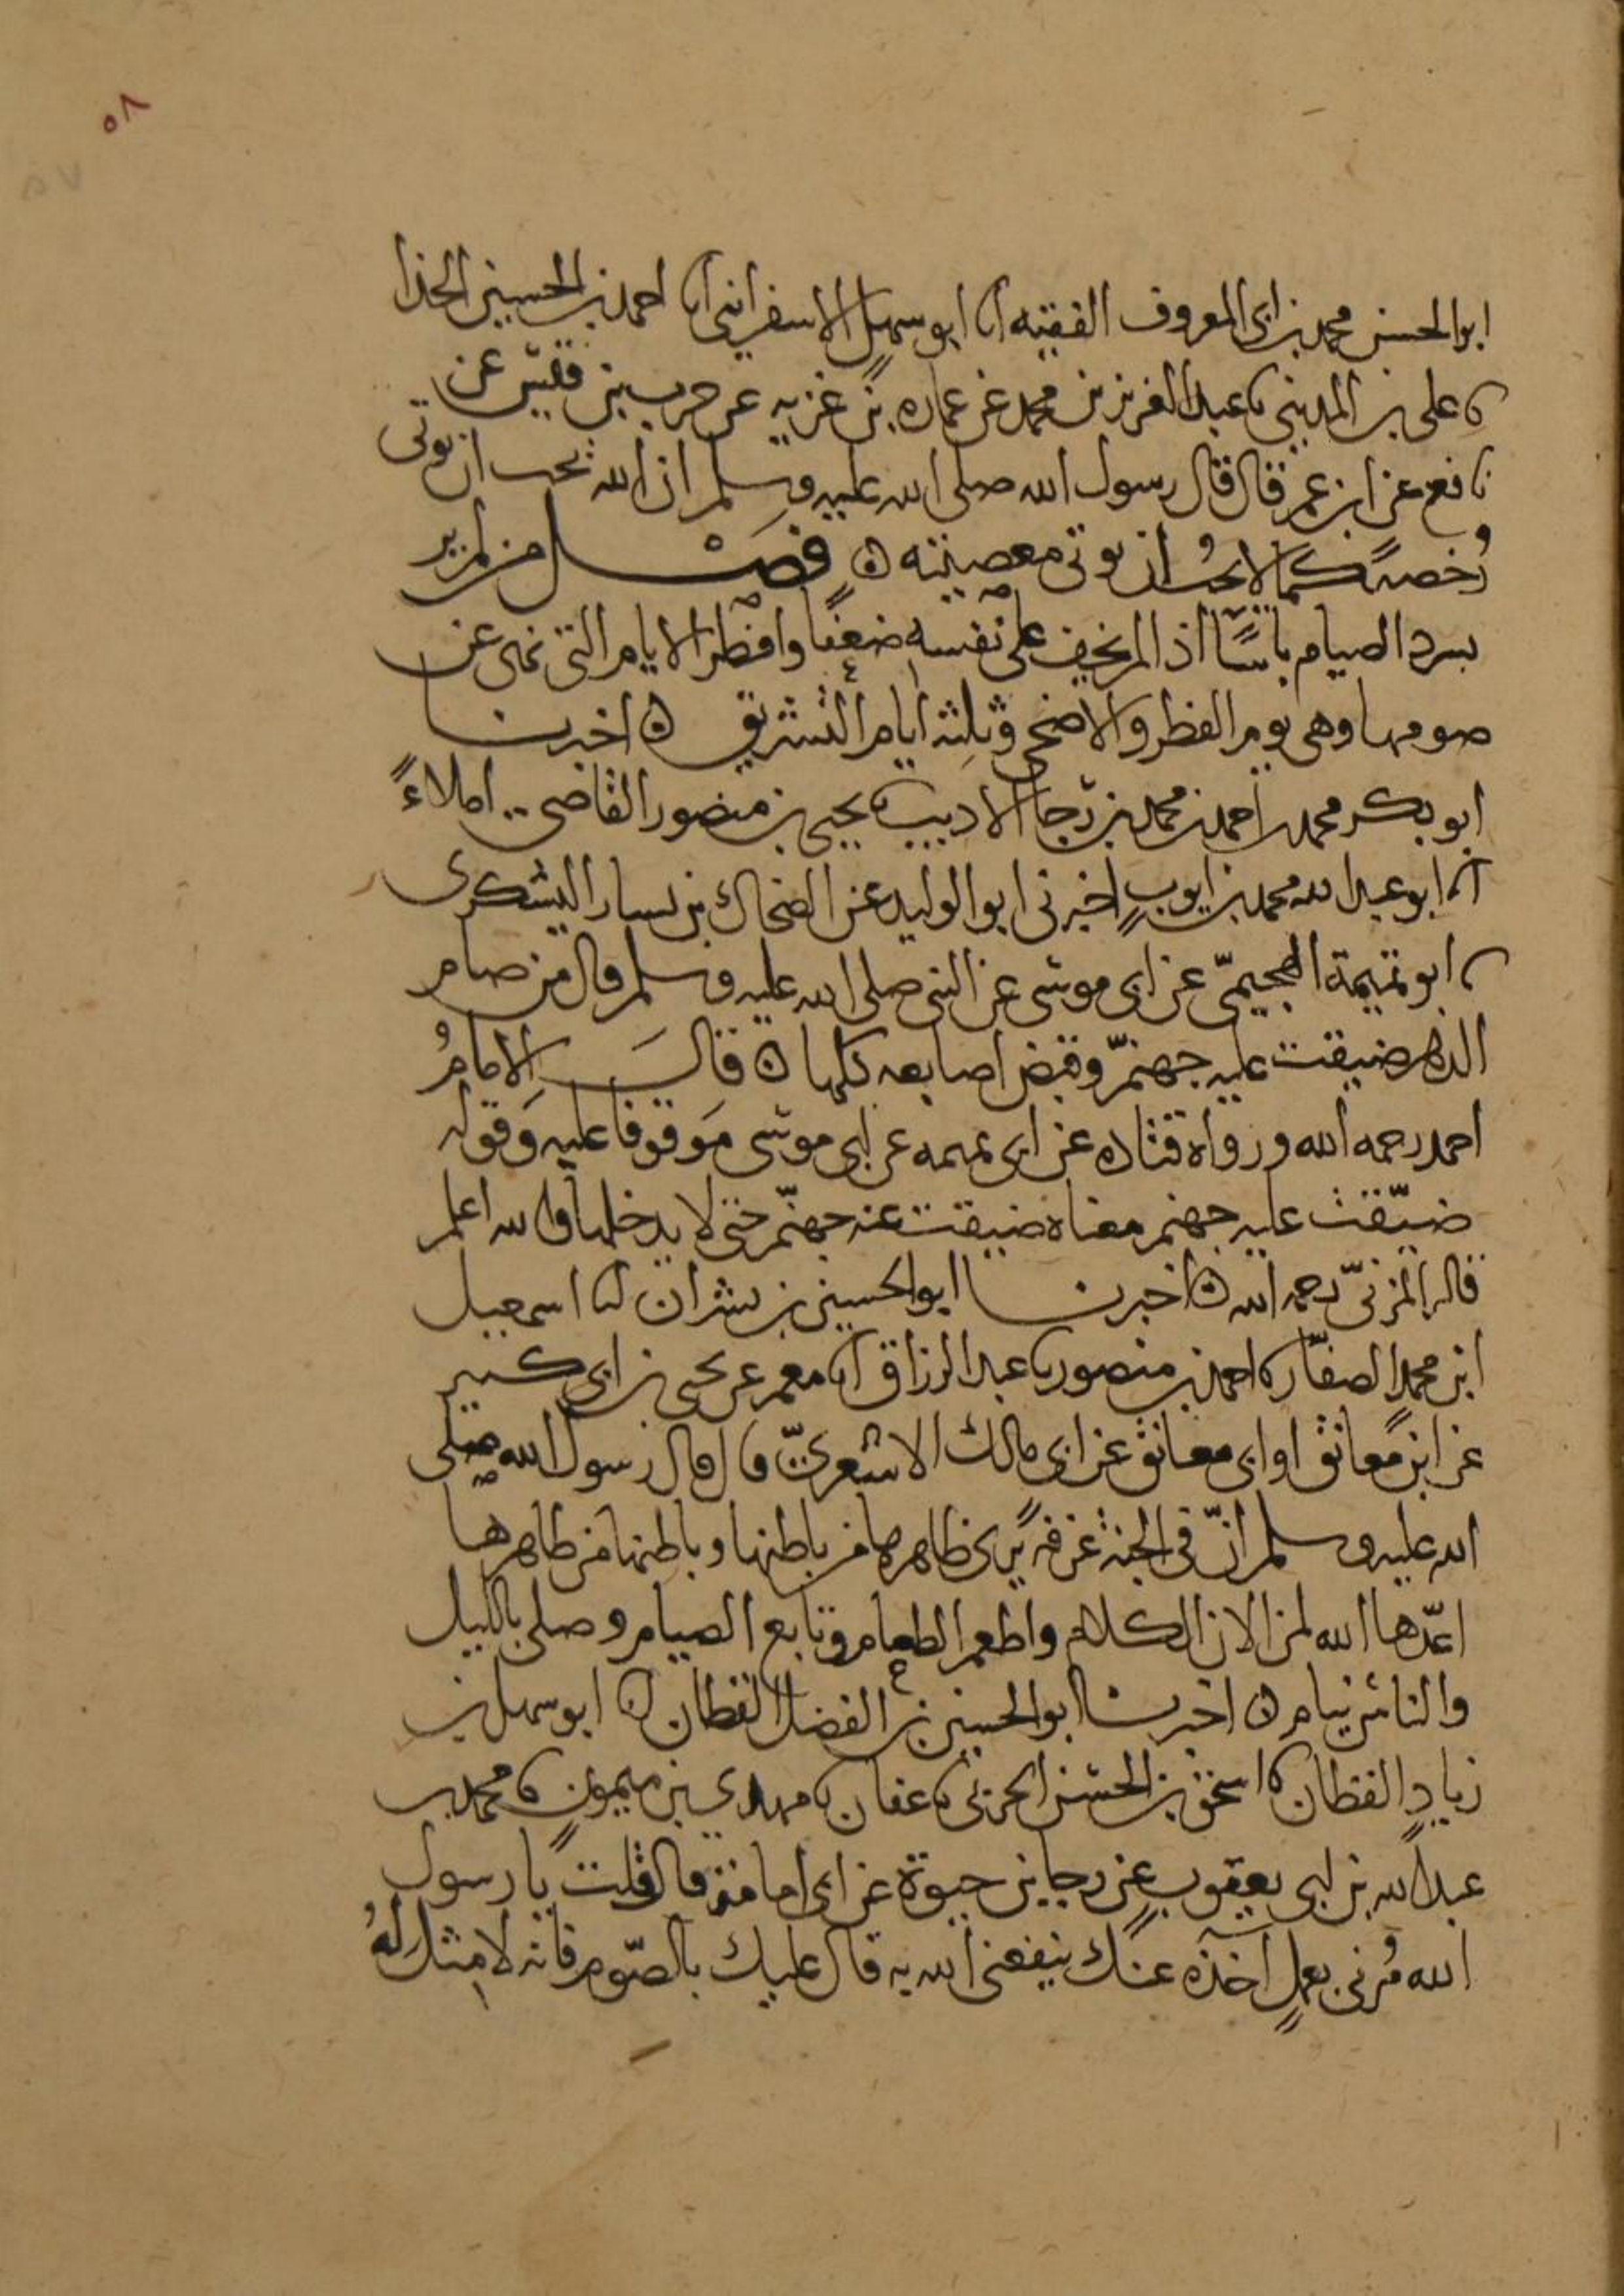 ٥٨
٥٧
ابو الحسن محمد بن ابى المعروف الفقيه انا ابو سهل الاسفرائنى انا احمد بن الحسين الحذا
نا على بن المدينى نا عبد العزيز بن محمد عن عماره بن غزيه عن حرب بن قيس عن
نافع عن ابن عمر قال قال رسول الله صلى الله عليه وسلم ان الله يحب ان توتى
رُخصه كما لا يحب ان توتى معصيته ٥ فصل من لم ير
بسرد الصيام باسًا اذا لم يخف على نفسه ضعفا وافطر الايام التى نهى عن
صومها وهى يوم الفطر والاضحى وثلثه ايام التشريق ٥ اخبرنا
ابو بكر محمد بن احمد بن محمد بن رجا الاديب نا يحيى بن منصور القاضى املاءً
انا ابو عبد الله محمد بن ايوب اخبرنى ابو الوليد عن الضحاك بن يسار اليشكرى
نا ابو تميمة الهجيمىّ عن ابى موسى عن النبى صلى الله عليه وسلم قال من صام
الدهر ضيقت عليه جهنم وقبض اصابعه كلها ٥ قال الامامُ
احمد رحمه الله ورواه قتاده عن ابى تميمه عن ابى موسى مَوقوفا عليه وَقوله
ضيّقت عليه جهنم معناه ضيقت عنه جهنّم حتى لا يدخلها والله اعلم
قاله المزنىّ رحمه الله ٥ اخبرنا ابو الحسين بن بشران انا اسمعيل
ابن محمد الصفّار نا احمد بن منصور نا عبد الرزاق انا معمر عن يحيى بن ابى كثير
عن ابن معانق او ابى معانق عن ابى مالك الاشعرىّ قال قال رسول الله صلى
الله عليه وسلم انّ فى الجنة غرفه يرى ظاهرها من باطنها وباطنها من ظاهرها
اعدّها الله لمن الان الكلام واطعم الطعام وتابع الصيام وصلى بالليل
والناس نيام ٥ اخبرنا ابو الحسين بن الفضل القطان انا ابو سهل بن
زيادٍ القطان نا اسحق بن الحسن الحربى نا عفان نا مهدى بن ميمون نا محمد بن
عبد الله بن ابى يعقوب عن رجا بن حيوة عن ابى امامة قال قلت يا رسول
الله مُرنى بعملٍ آخذه عنك ينفعنى الله به قال عليك بالصّوم فانه لا مثل لهُ